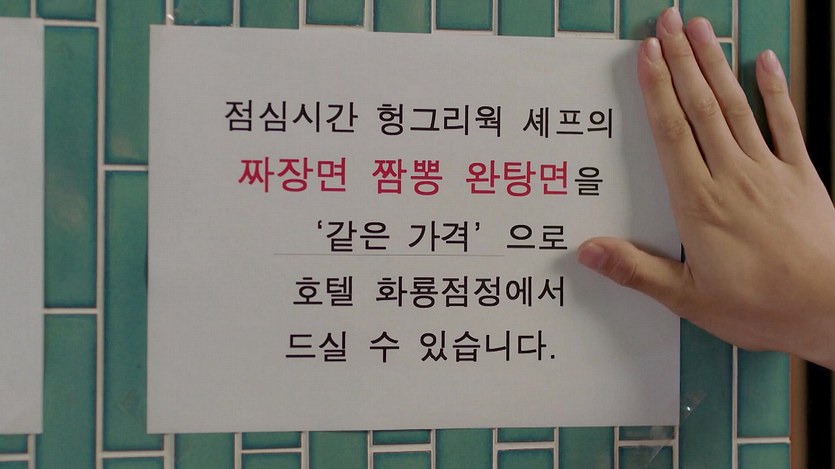 점심시간 헝그리웍 셰프의
짜장면 짬뽕 완탕면을
‘같은 가격’ 으로
호텔 화룡점정에서
드실 수 있습니다.